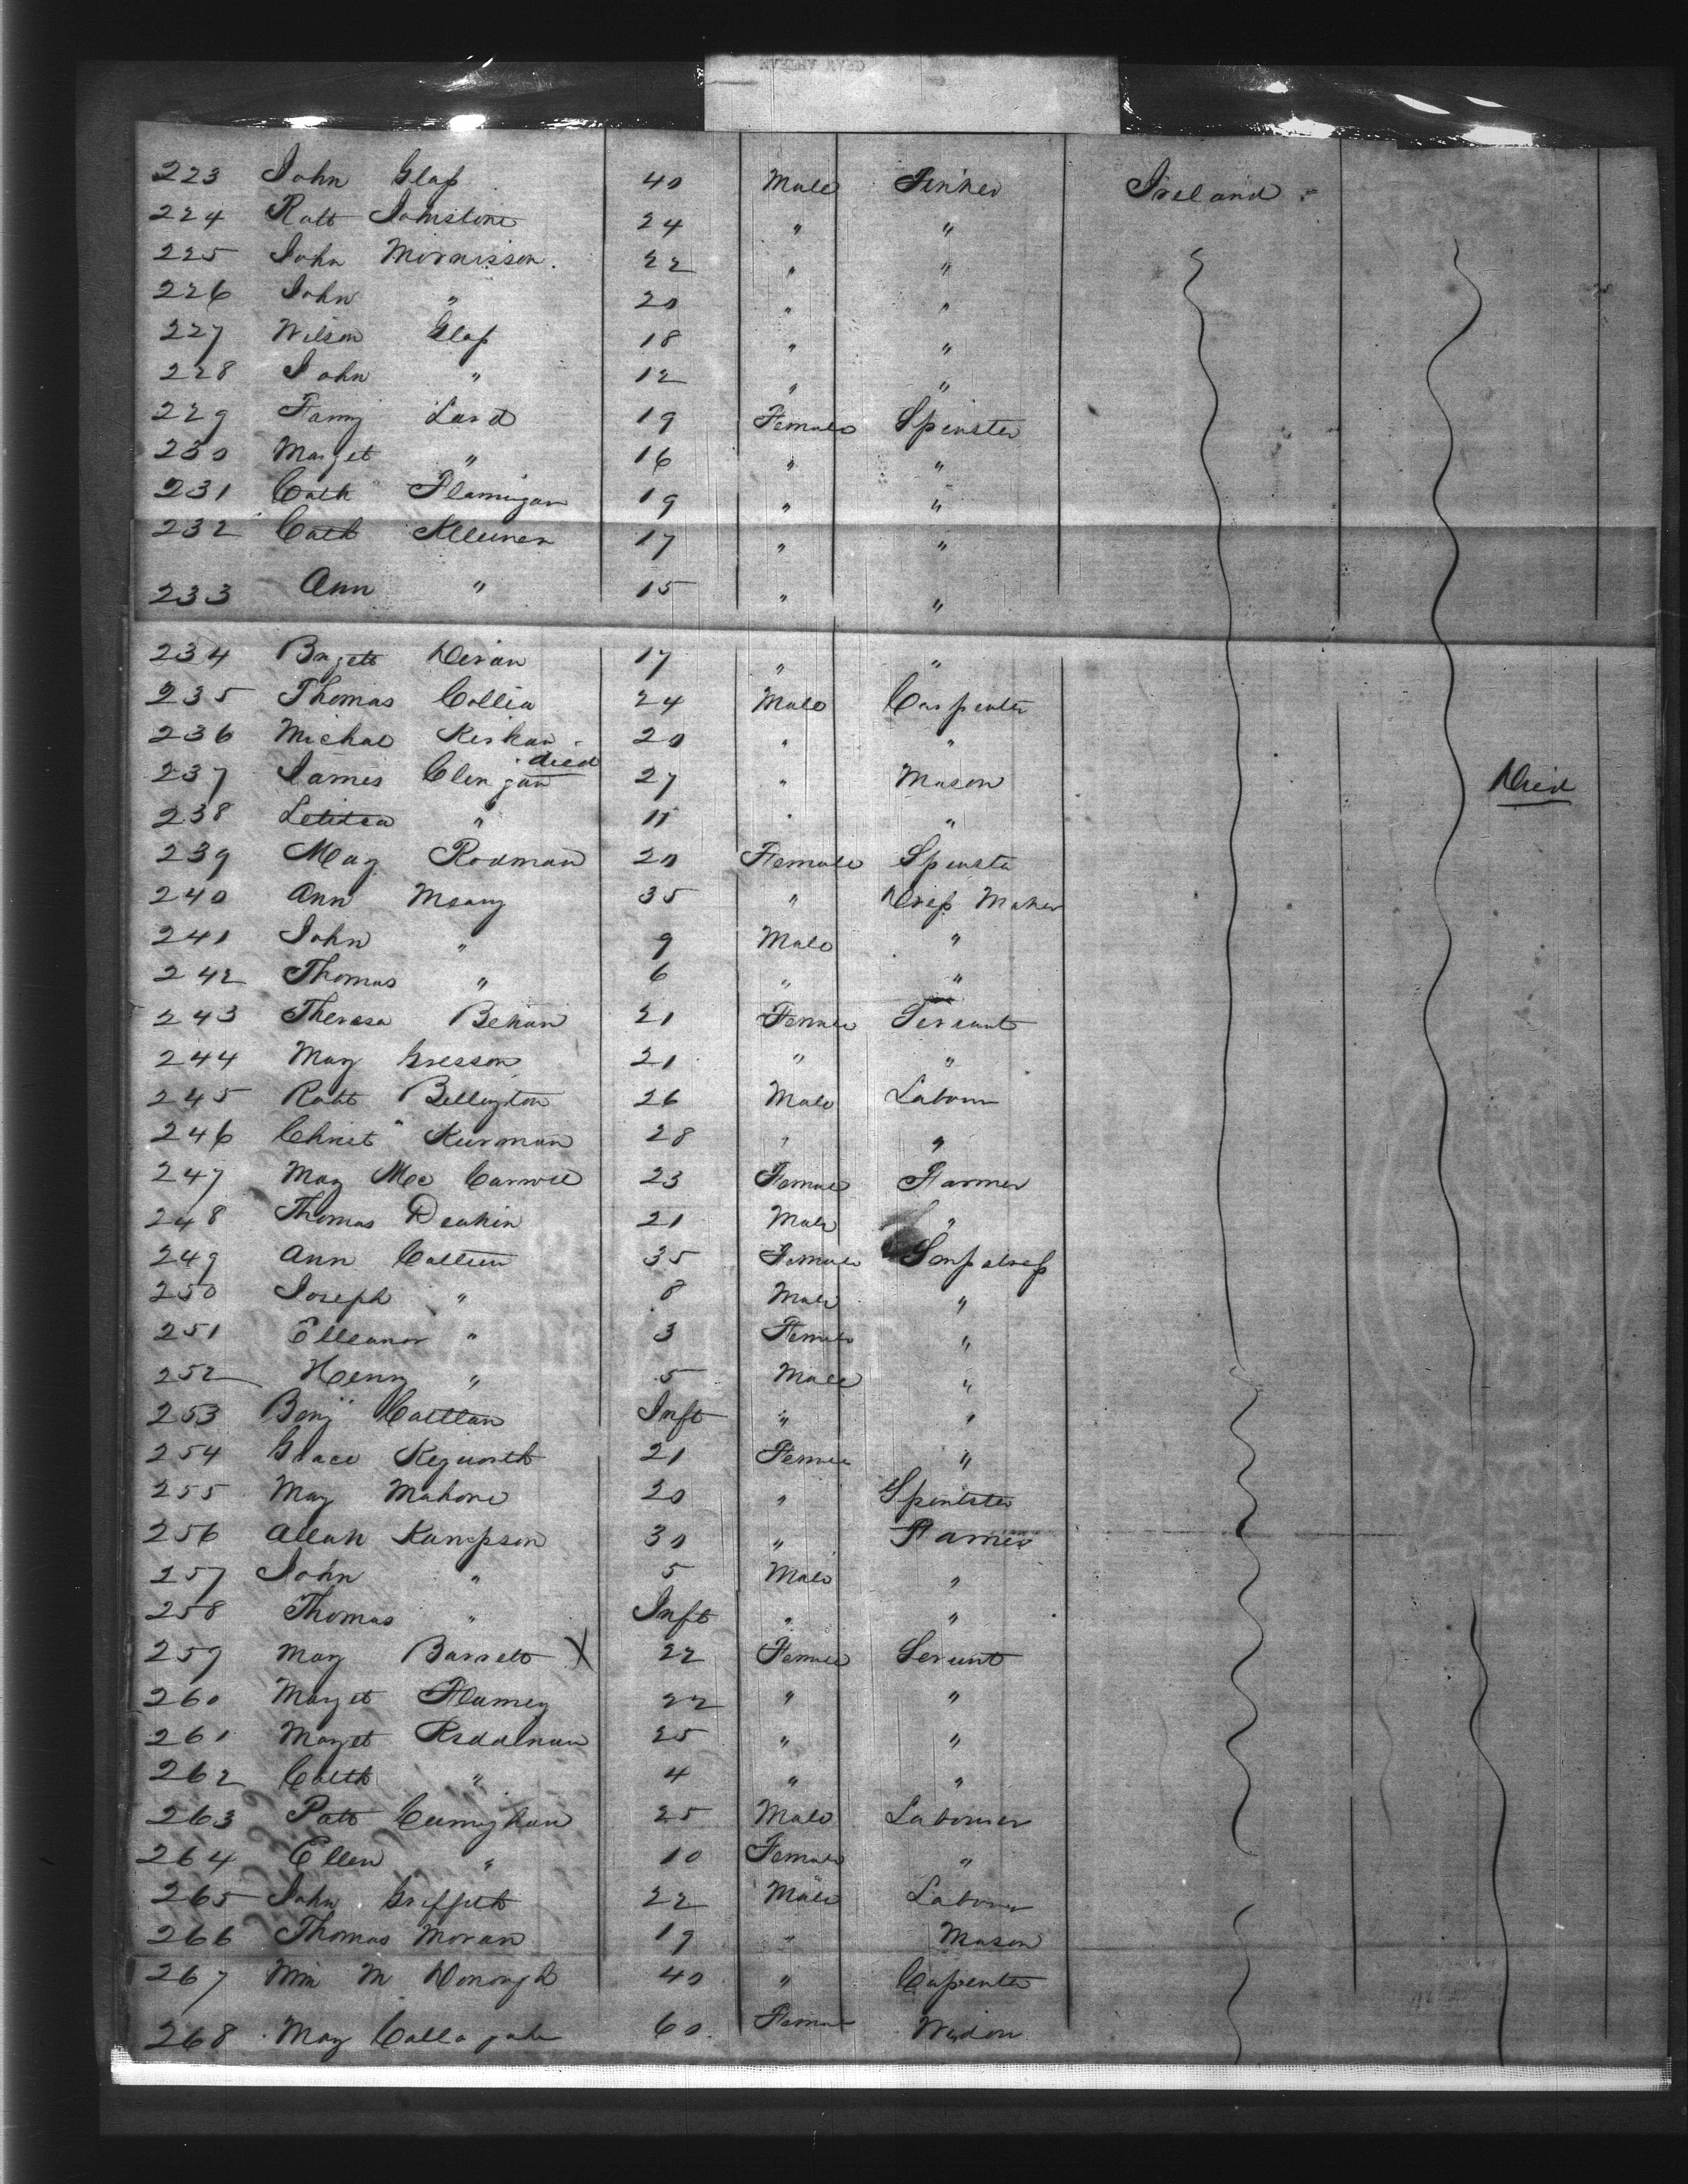 223 John Glass 40 Male Tinker Ireland
224 Robt Johnstone 24 " "
225 John Morrisson 22 " "
226 John " 20 " "
227 Wilson Glass 18 " "
228 John " 12 " "
229 Fanny Lard 19 Female Spinster
230 Marget " 16 " "
231 Cath Flannigan 19 " "
232 Cath 17 " "
233 Ann " 15 " "
234 17 " "
235 Thomas Collia 24 Male Carpenter
236 Michae 20 " "
237 James Clengan died 27 " Mason Died
238 Letitea " 11 " "
239 May Rodman 20 Female Spinste
240 Ann Meany 35 " Dress Maker
241 John " 9 Male "
242 Thomas " 6 " "
243 Theresa Behan 21 Female Servant
244 May Gresson 21 " "
245 Robt Bellington 26 Male Labour
246 Christ Kurman 28 " "
247 May Mc 23 Female Farmer
248 Thomas Deakin 21 Male "
249 Ann 35 Female
250 Joseph " 8 Male "
251 Elleanor " 3 Female "
252 Henry " 5 Male "
253 Benj Inft " "
254 Grace Kegworth 21 Female "
255 May Mahone 20 " Spintster
256 30 " Farmer
257 John " 5 Male "
258 Thomas " Inft " "
259 May Barrett X 22 Female Servant
260 Marget 22 " "
261 Marget 25 " "
262 Cath " 4 " "
263 Patt 25 Male Labourer
264 Ellen " 10 Female "
265 John Griffith 22 Male Labour
266 Thomas Moran 19 " Mason
267 Wm M Donough 40 " Capenter
268 May Callagahn 60 Female Widow